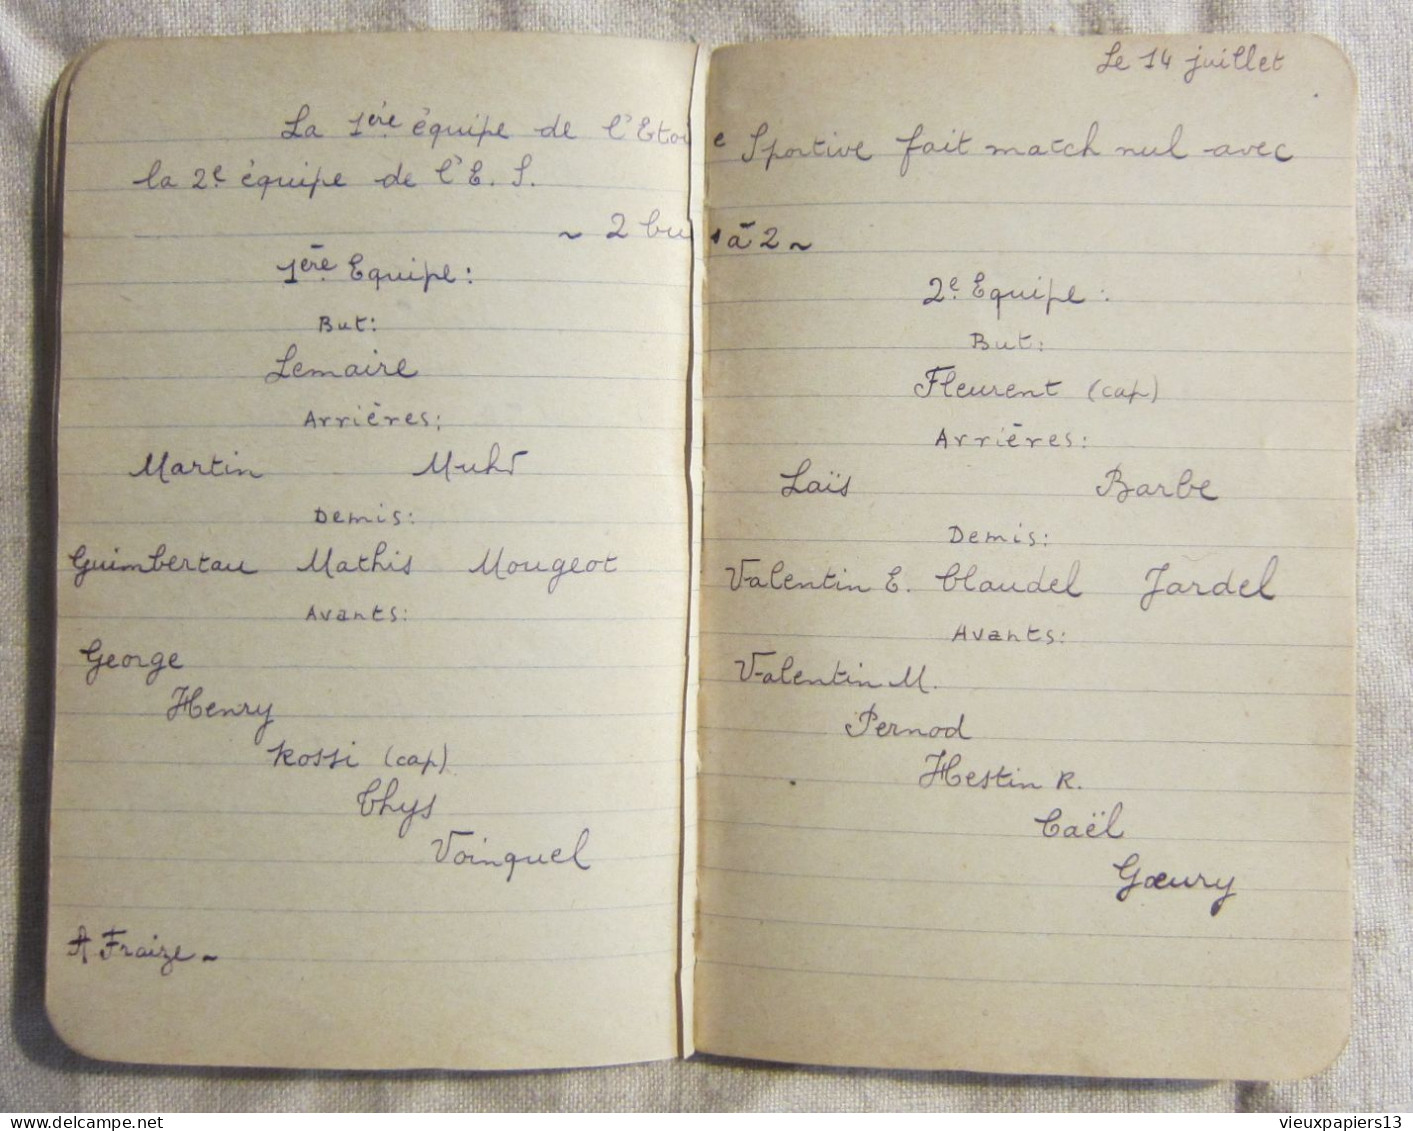 Le 14 juillet
La 1ère équipe de l'Etoi e Sportive fait match nul avec
la 2e équipe de l'E. S.
~ 2 bu s à 2 ~
1ère Equipe:
But:
Lemaire
Arrières:
Martin
Demis:
Guimbertau Mathis Mougeot
Avants:
George
Henry
Rossi (cap)
Thys
Voinquel
A Fraize ~
2e Equipe:
But:
Fleurent (cap)
Arrières:
Laïs Barbe
Demis:
Valentin E. Claudel Jardel
Avants:
Valentin M.
Pernod
Hestin R.
Caël
Gœury
vieuxpapiers13